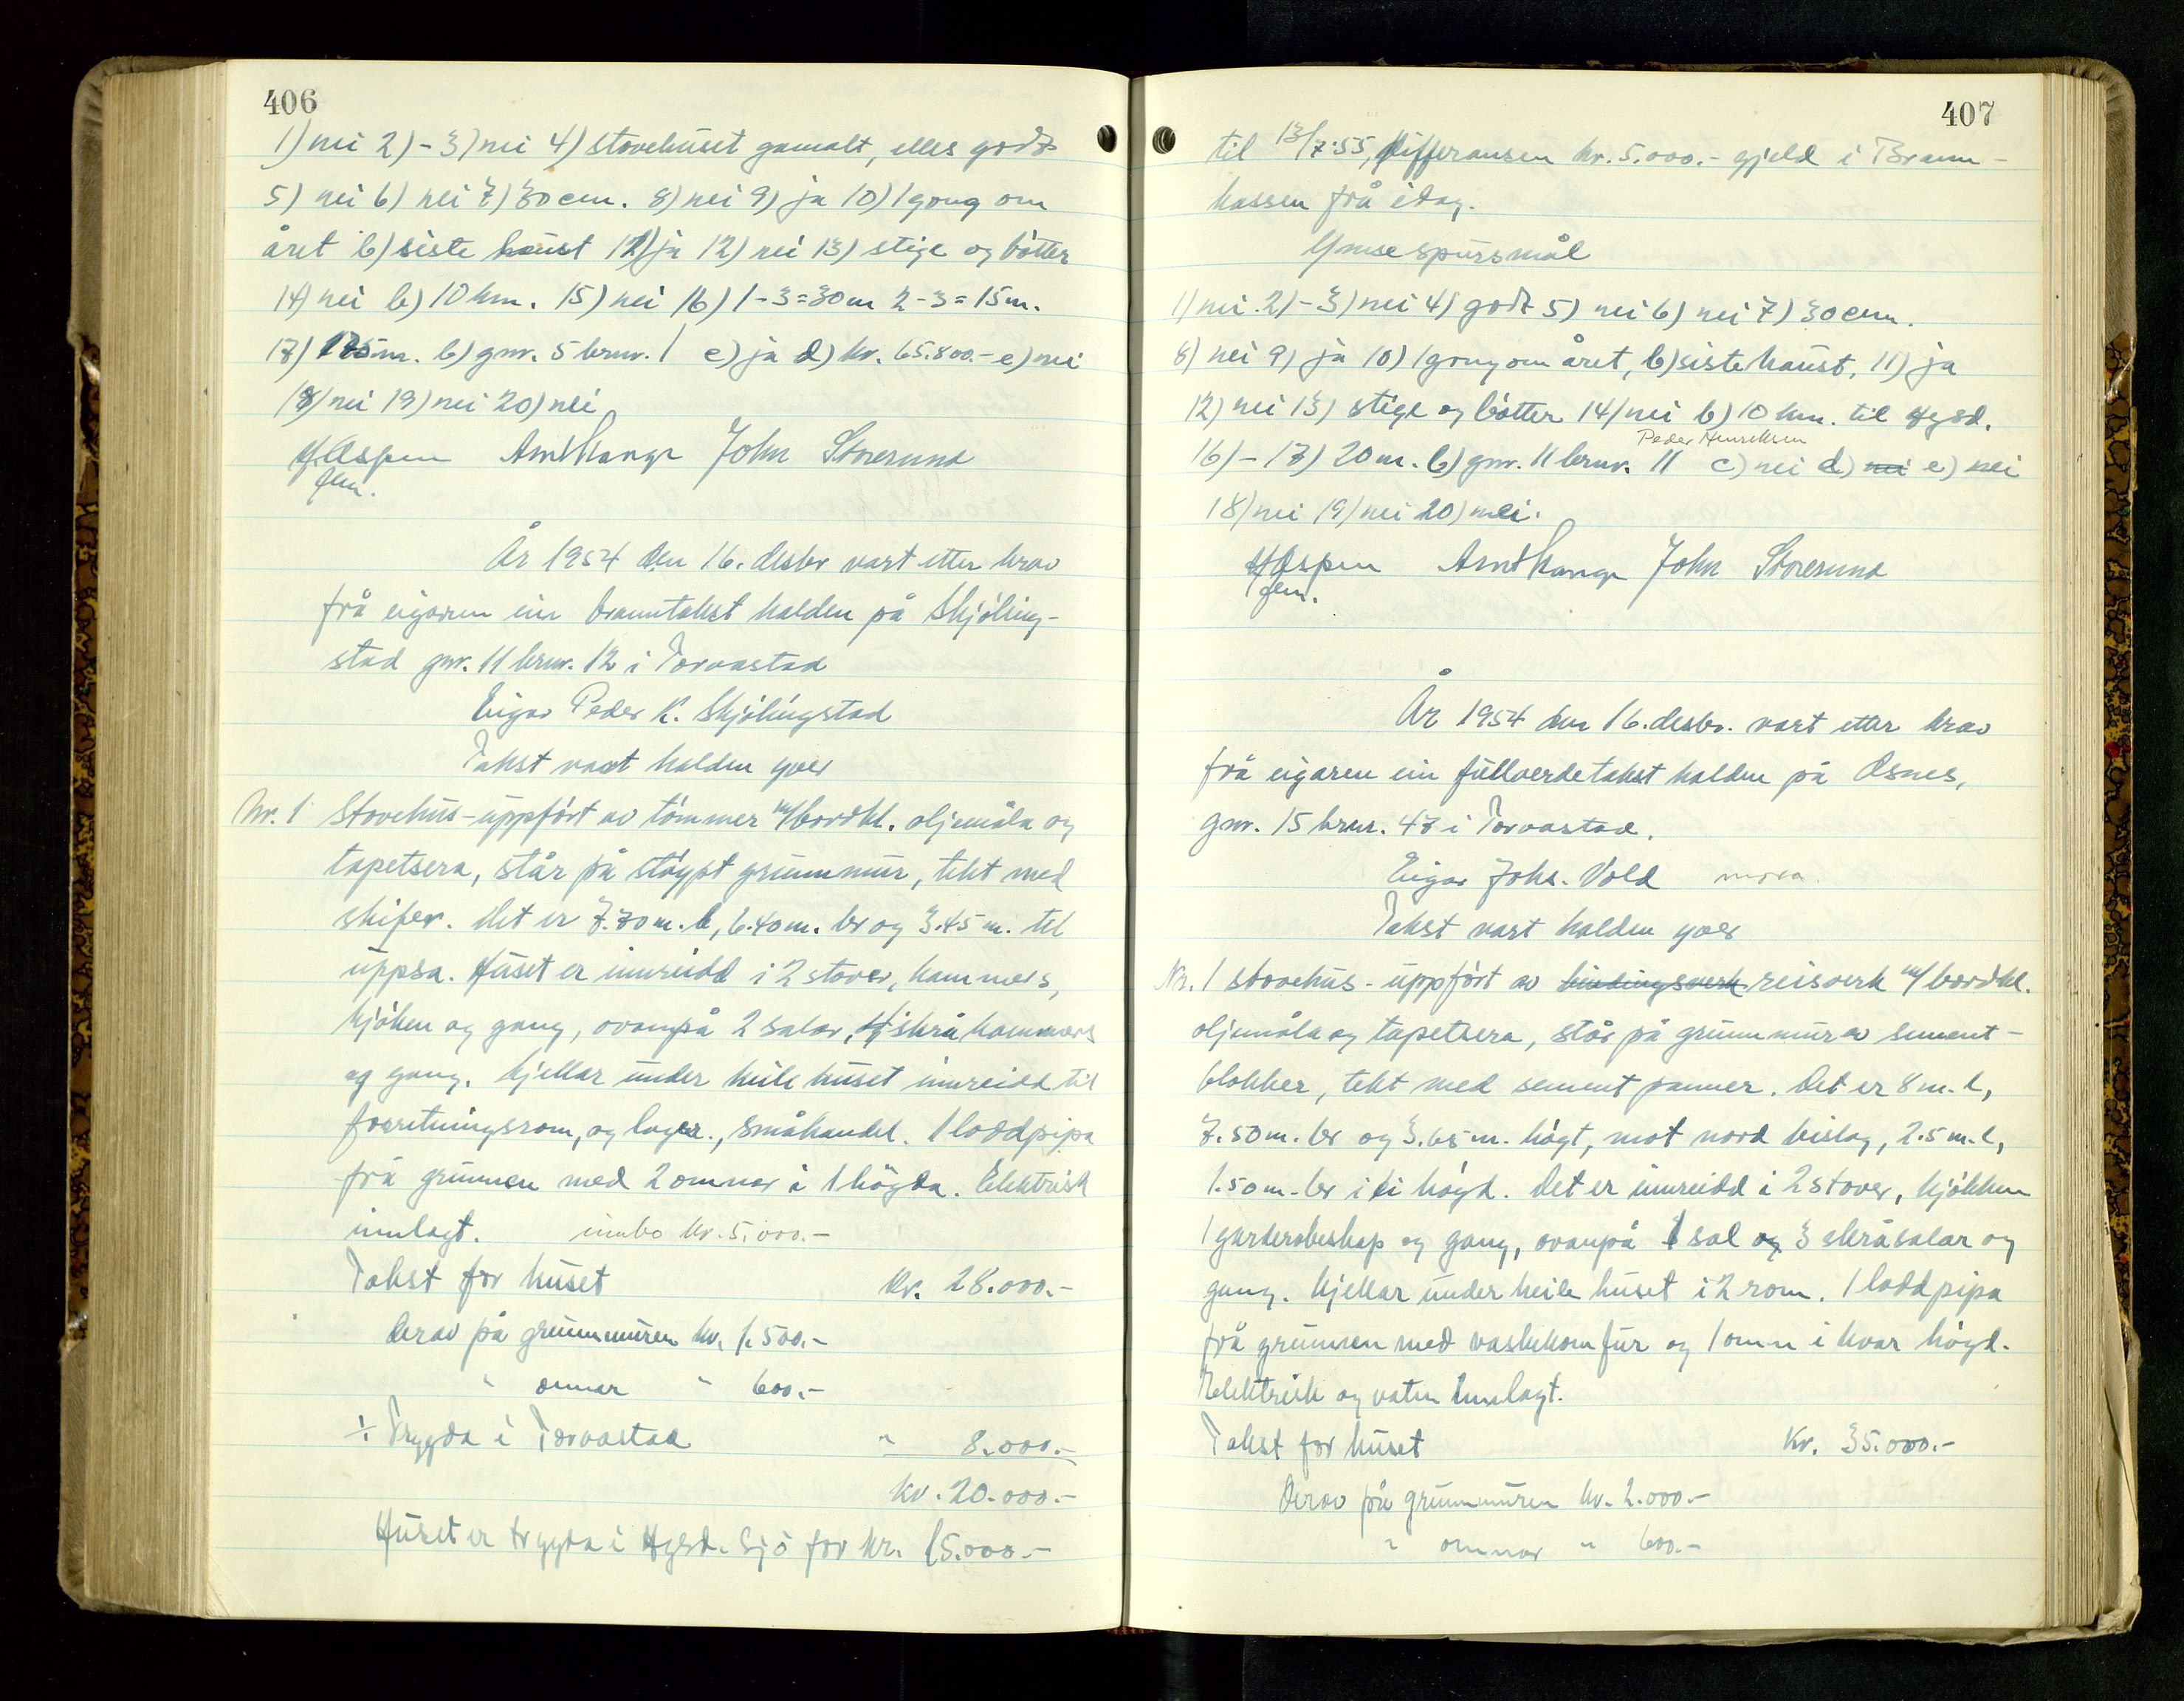 406
1) nei 2) - 3) nei 4) stovehuset gamalt, elles godt
5) nei 6) nei 7) 30 cm. 8) nei 9) ja 10) 1 gong om
året b) siste haust 11) ja 12) nei 13) stige og bøtter
14) nei b) 10 km. 15) nei 16) 1-3=30m 2-3=15m.
17) 175m. b) gnr. 5 brnr. 1 c) ja d) kr. 65.800.- e) nei
18) nei 19) nei 20) nei
H. Aspen John Storesund
fm.
År 1954 den 16. desbr vart etter krav
frå eigaren ein branntakst halden på Skjøling-
stad gnr. 11 brnr. 12 i Torvastad
Eigar Peder K. Skjølingstad
Takst vart halden yver
Nr. 1 Stovehus - uppført av tømmer m/bordkl. oljemåla og
tapetsera, står på støypt grunnmur, tekt med
skifer. Det er 7.70m. l, 6.40m. br og 3.45m. til
uppsa. Huset er innreidd i 2 stover, kammers,
kjøken og gang, ovanpå 2 salar, skråkammers
og gang. Kjellar under heile huset innreidd til
forretningsrom, og lager., småhandel. 1 loddpipa
frå grunnen med 2 omnar i 1 høgda. Elektrisk
innlagt. innbo kr. 5.000.-
Takst for huset kr. 28.000.-
Derav på grunnmuren kr. 1.500.-
" omnar " 600.-
÷ Trygda i Torvastad " 8.000.-
kr. 20.000.-
Huset er trygda i Hgsd. Sjø for kr. 15.000.-
407
til 13/7-55, Differansen kr. 5.000.- gjeld i Brann-
kassen frå idag.
Ymse spursmål
1) nei 2) - 3) nei 4) godt 5) nei 6) nei 7) 30 cm.
8) nei 9) ja 10) 1 gong om året, b) siste haust, 11) ja
12) nei 13) stige og bøtter 14) nei b) 10 km. til Hgsd.
Peder Henriksen
16) - 17) 20m. b) gnr. 11 brnr. 11 c) nei d) nei e) nei
18) nei 19) nei 20) nei.
H. Aspen John Storesund
fm.
År 1954 den 16. desbr. vart etter krav
frå eigaren ein fullverdetakst halden på Osnes,
gnr. 15 brnr. 47 i Torvastad.
Eigar Johs. Vold
Takst vart halden yver
Nr. 1 Stovehus - uppført av bindingsverk reisverk m/bordkl.
oljemåla og tapetsera, står på grunnmur av sement-
blokker, tekt med sement panner. Det er 8m. l,
7.50m. br og 3.65m. høgt, mot nord bislag, 2.5m. l,
1.50m. br i ei høgd. Det er innreidd i 2 stover, kjøkken
1 garderobeskap og gang, ovanpå 1 sal og 3 skråsalar og
gang. Kjellar under heile huset i 2 rom. 1 loddpipa
frå grunnen med vaskekomfur og 1 omn i kvar høgd.
Elektrisk og vatn innlagt.
Takst for huset Kr. 35.000.-
Derav på grunnmuren kr. 2.000.-
" omnar " 600.-